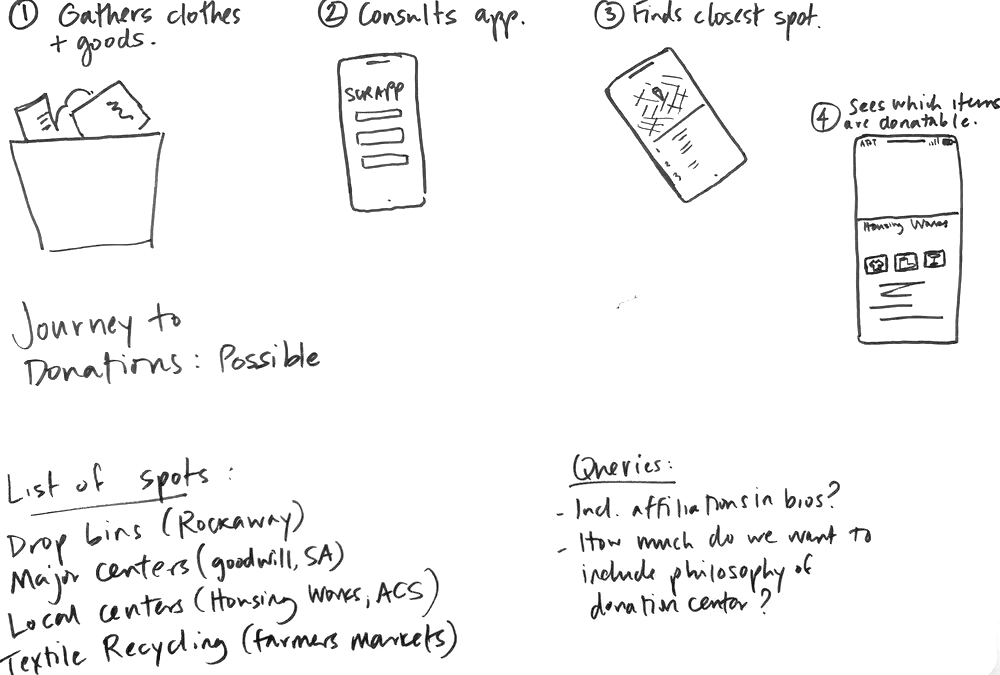 ① Gathers clothes
+ goods.
② Consults app.
SCRAPP
③ Finds closest spot.
1
2
3
④ Sees which items
are donatable.
ATT
Housing Works
Journey to
Donations: Possible
List of spots:
Drop bins (Rockaway)
Major centers (goodwill, SA)
Local centers (Housing Works, ACS)
Textile Recycling (farmers markets)
Queries:
- Incl. affiliations in bios?
- How much do we want to
include philosophy of
donation center?